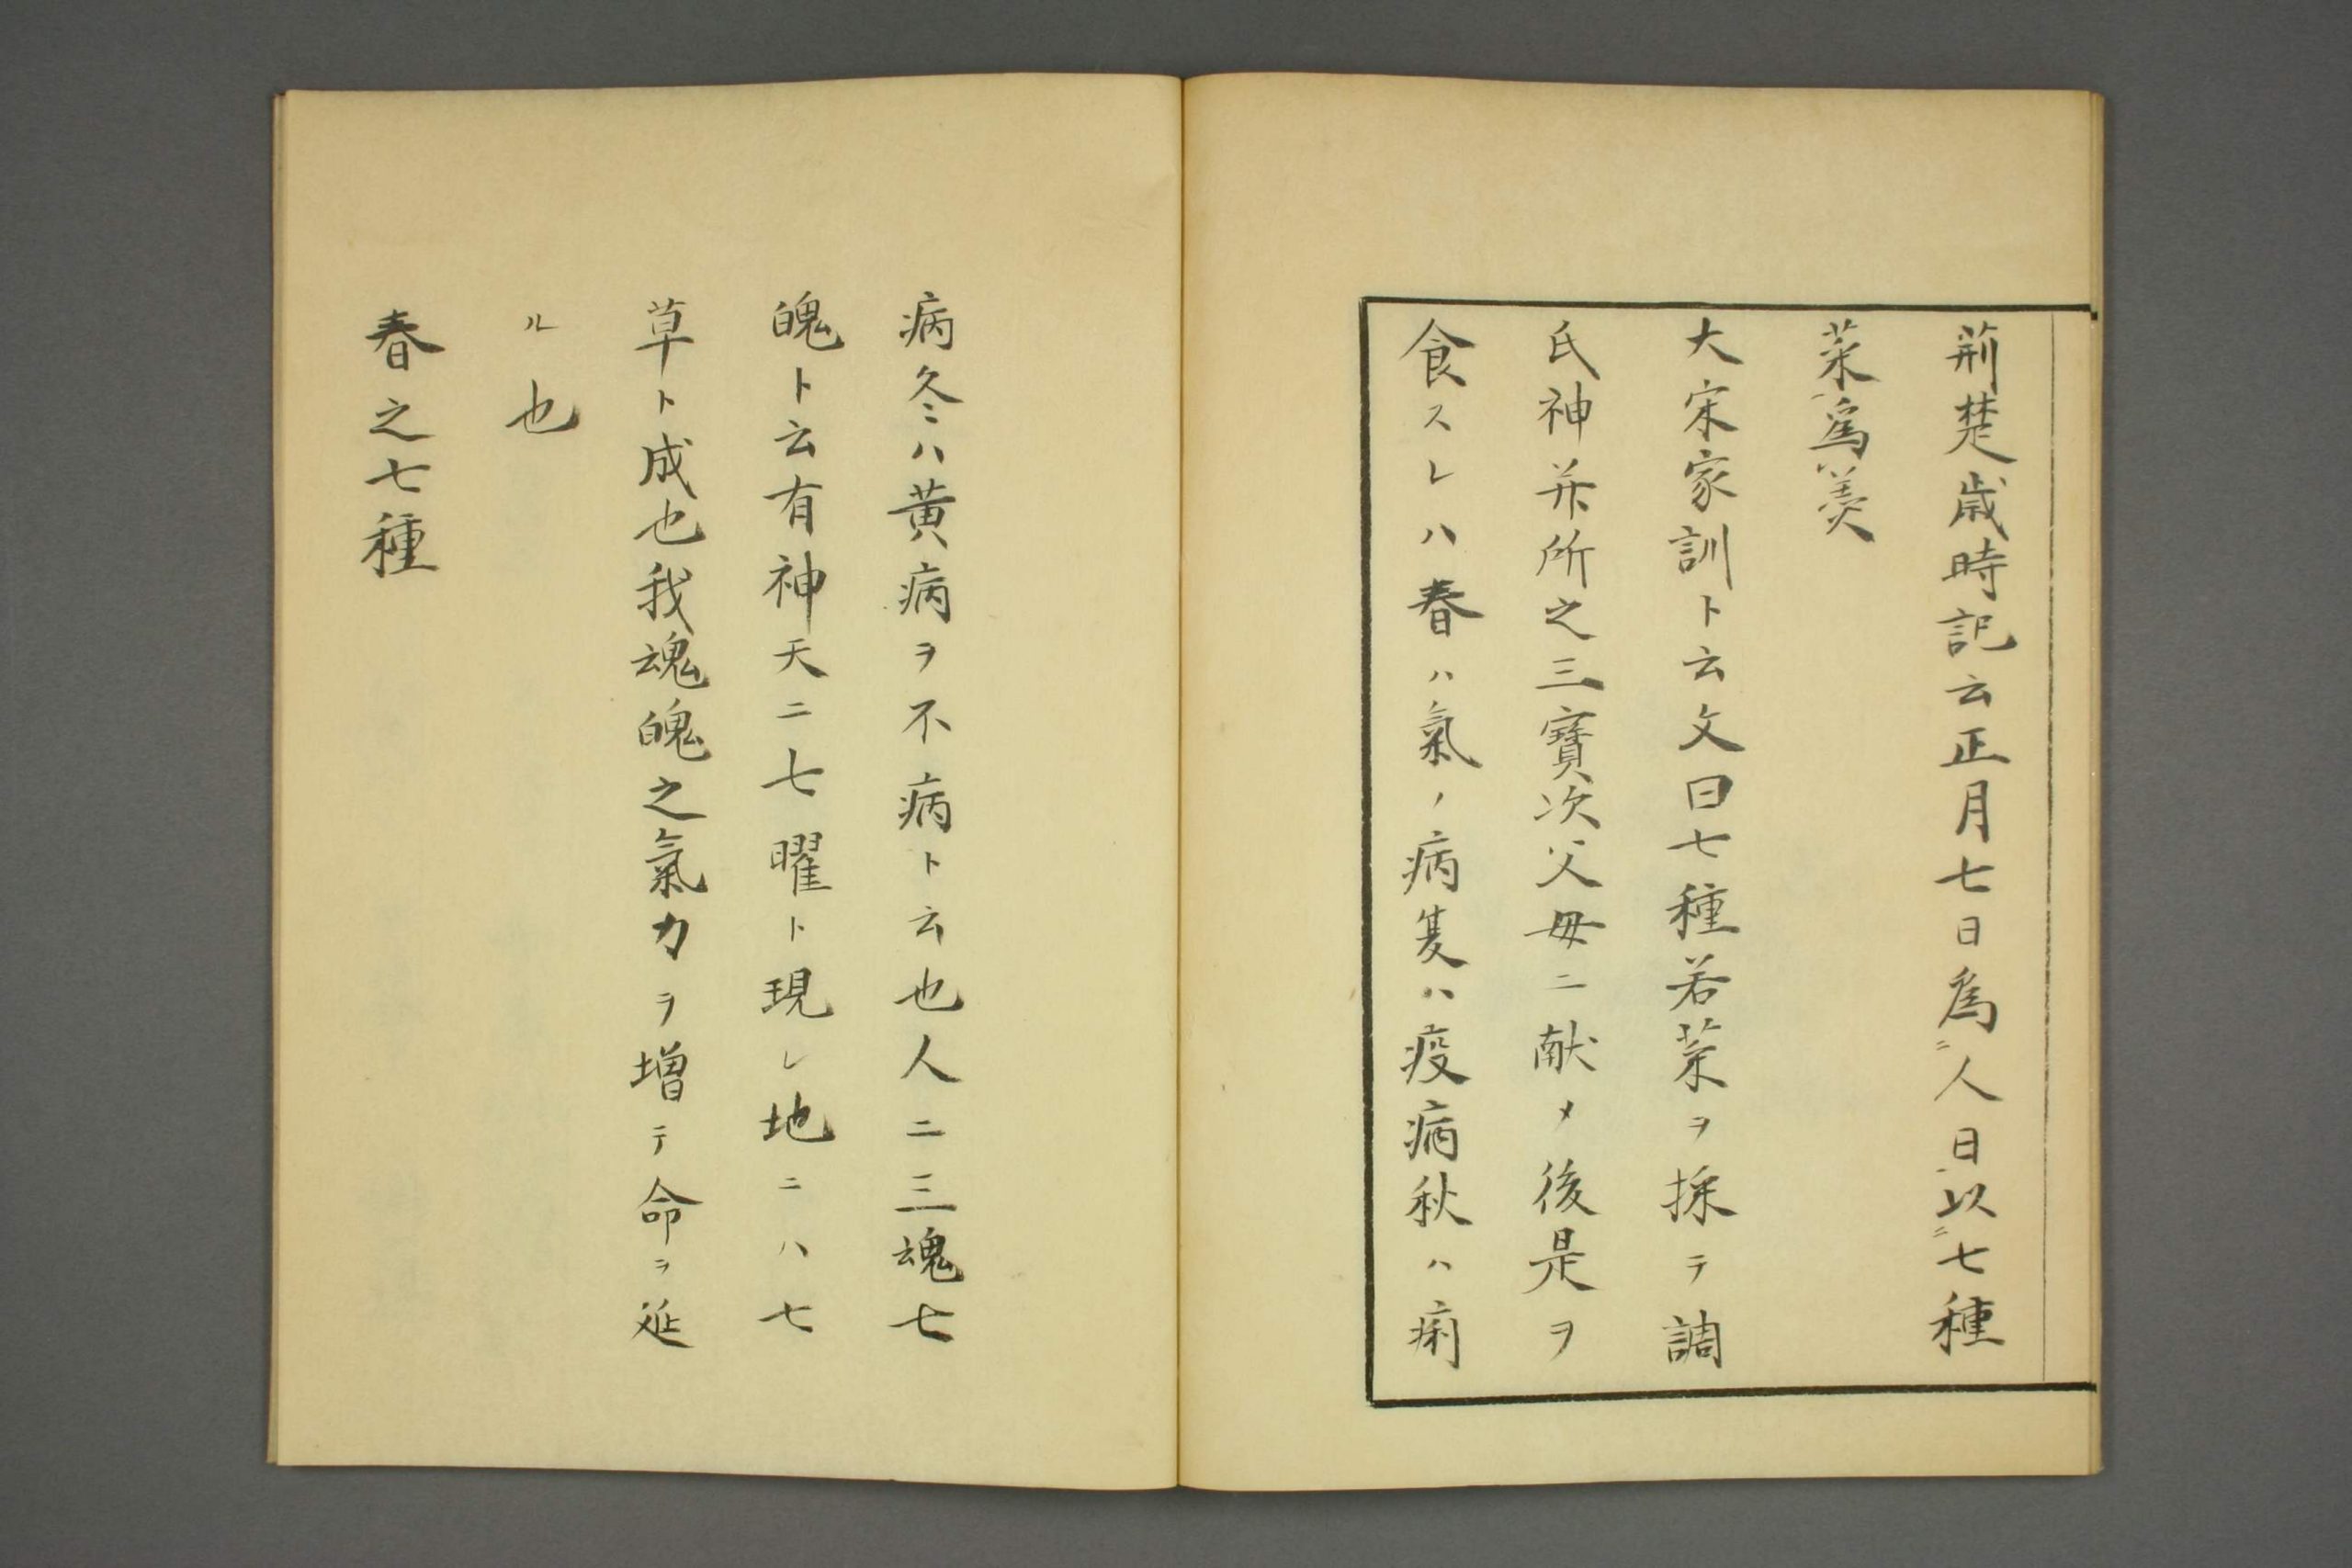 荊楚歳時記云正月七日爲ニ人日以ニ七種
菜爲羹
大宋家訓ト云文曰七種若菜ヲ採テ調
氏神并所之三寳次父母ニ献メ後是ヲ
食スレハ春ハ氣ノ病夏ハ疫病秋ハ痢
病冬ハ黄病ヲ不病ト云也人ニ三魂七
魄ト云有神天ニ七曜ト現レ地ニハ七
草ト成也我魂魄之氣力ヲ増テ命ヲ延
ル也
春之七種